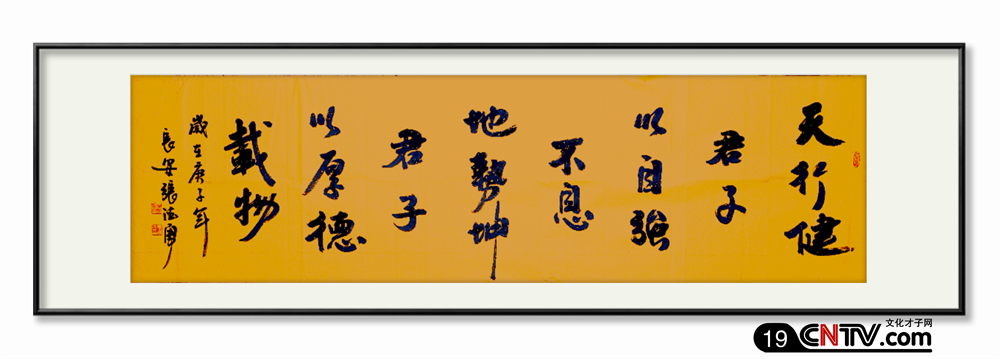 天行健
君子
以自強
不息
地勢坤
君子
以厚德
載物
歲在庚子年
長安張浩軍
19 CNTV.com
文化才子网